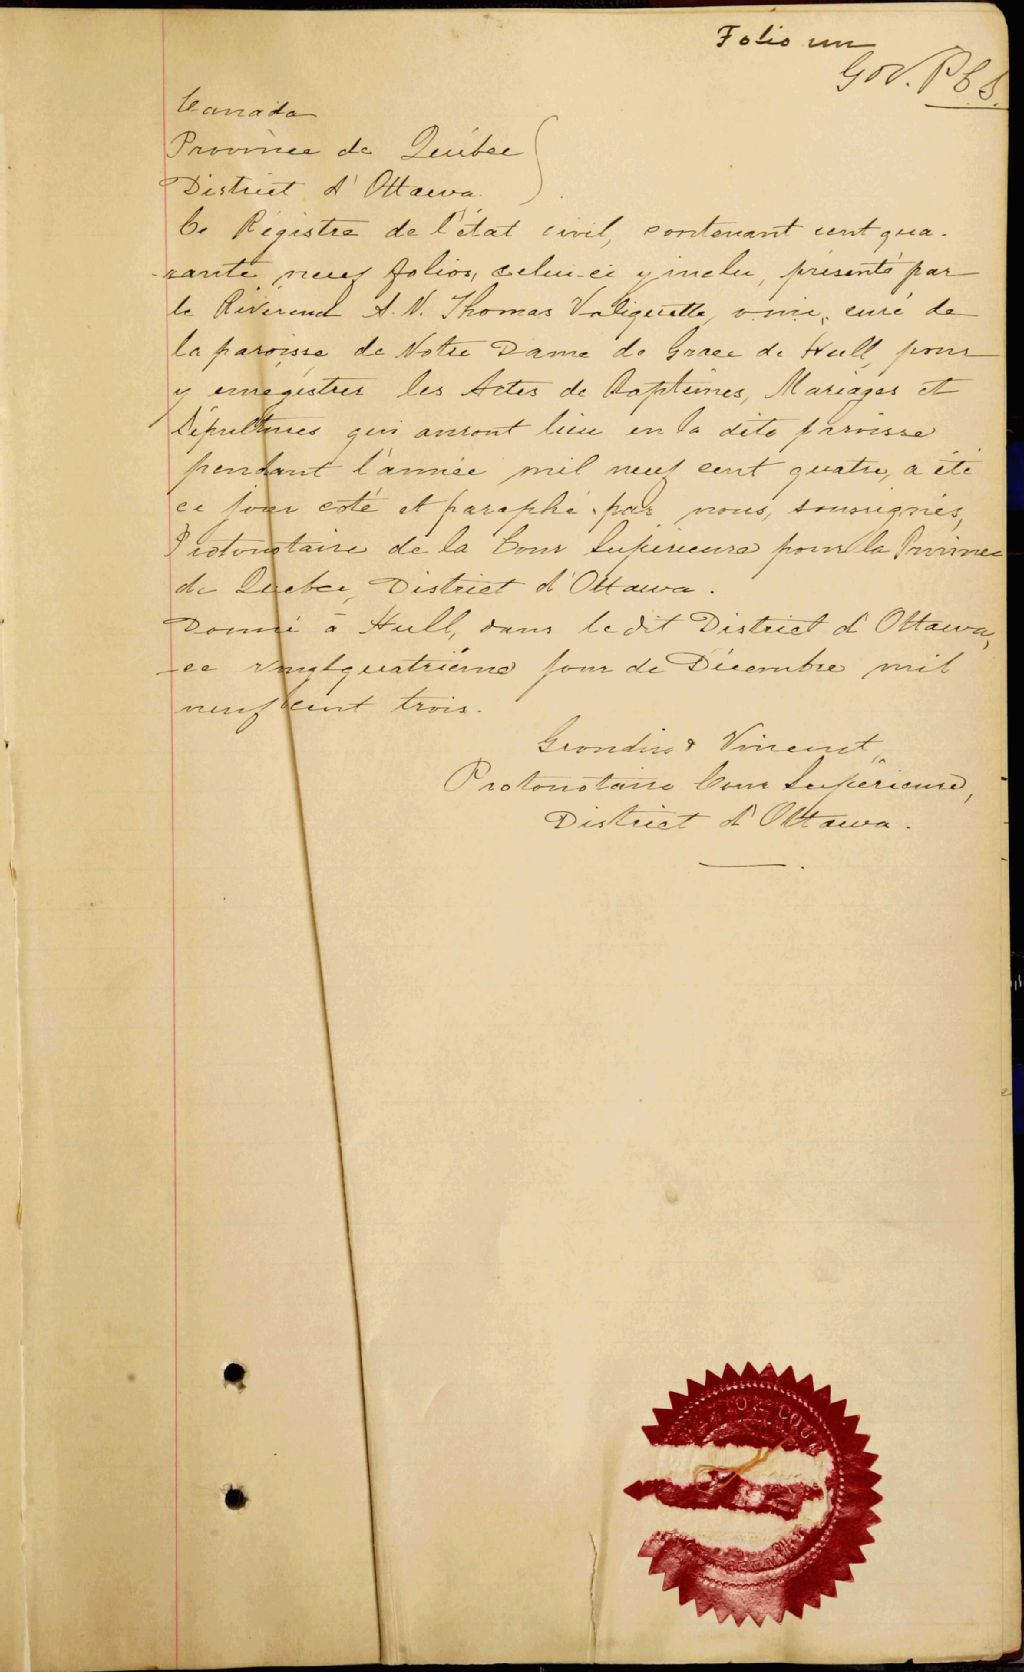 Folio un
Canada
Province de Québec
District d'Ottawa.
Ce Régistre de l'état civil, contenant cent qua-
rante neuf folios, celui-ci y inclu, présenté par
le Révérend A. N. Thomas Valiquette, o.m.i., curé de
la paroisse de Notre Dame de Grace de Hull, pour
y enregistrer les Actes de Baptêmes, Mariages et
Sépultures qui auront lieu en la dite paroisse
pendant l'année mil neuf cent quatre, a été
ce jour coté et paraphé par nous, soussignés,
Protonotaire de la Cour Supérieure pour la Province
de Quebec, District d'Ottawa.
Donné à Hull, dans le dit District d'Ottawa,
ce vingtquatrième jour de Décembre mil
neuf cent trois.
Grondin & Vincent,
Protonotaire Cour Supérieure,
District d'Ottawa.
COUR